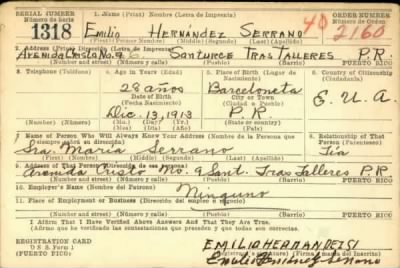 SERIAL NUMBER 1. Name (Print) Nombre (Letra de Imprenta) ORDER NUMBER
Número de Serie Número de Orden
1318 Emilio HERNÁNDEZ SERRANO 40 2160
(First) (Primer Nombre) (Middle) (Segundo Nombre) (Last) (Apellido)
2. Address (Print) Dirección (Letra de Imprenta)
No. 9 Santurce Tras Talleres P.R.
(Number and street) (Número y calle) (Town) (Barrio) PUERTO RICO
3. Telephone (Teléfono) 4. Age in Years (Edad) 5. Place of Birth (Lugar de Nacimiento) 6. Country of Citizenship (Ciudadanía)
28 años Barceloneta
Date of Birth City or Town
(Fecha Nacimiento) (Ciudad o Pueblo) E. U. A.
Dic. 13, 1913 P R
State or country
(Number) (Número) (Mo.) (Day) (Yr.) (Estado o país)
7. Name of Person Who Will Always Know Your Address (Nombre de la Persona que siempre sabrá su dirección) 8. Relationship of That Person (Parentesco)
Sra. Maria Serrano Tía
(First) (Middle) (Last) (Apellido)
9. Address of That Person (Dirección de esa persona)
Cristo No. 9 Sant. Tras Talleres P.R
(Number and street) (Número y calle) (Town) (Barrio) PUERTO RICO
10. Employer's Name (Nombre del Patrono)
Ninguno
11. Place of Employment or Business (Dirección del empleo o negocio)
(Number and street) (Número y calle) (Town) (Barrio) PUERTO RICO
I Affirm That I Have Verified Above Answers and That They Are True.
(Afirmo que he verificado las contestaciones que preceden y que todas son correctas.)
REGISTRATION CARD EMILIO HERNANDEZ S
D S S Form 1 Emilio Hernández Serrano
(PUERTO RICO)